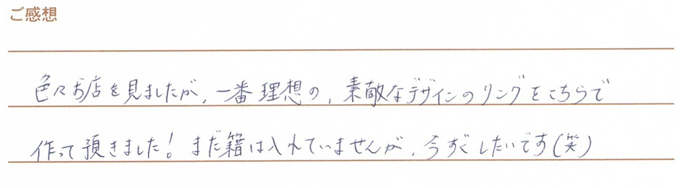 ご感想
色々お店を見ましたが、一番理想の、素敵なデザインのリングをこちらで
作って頂きました！まだ籍は入れていませんが、今すぐしたいです(笑)